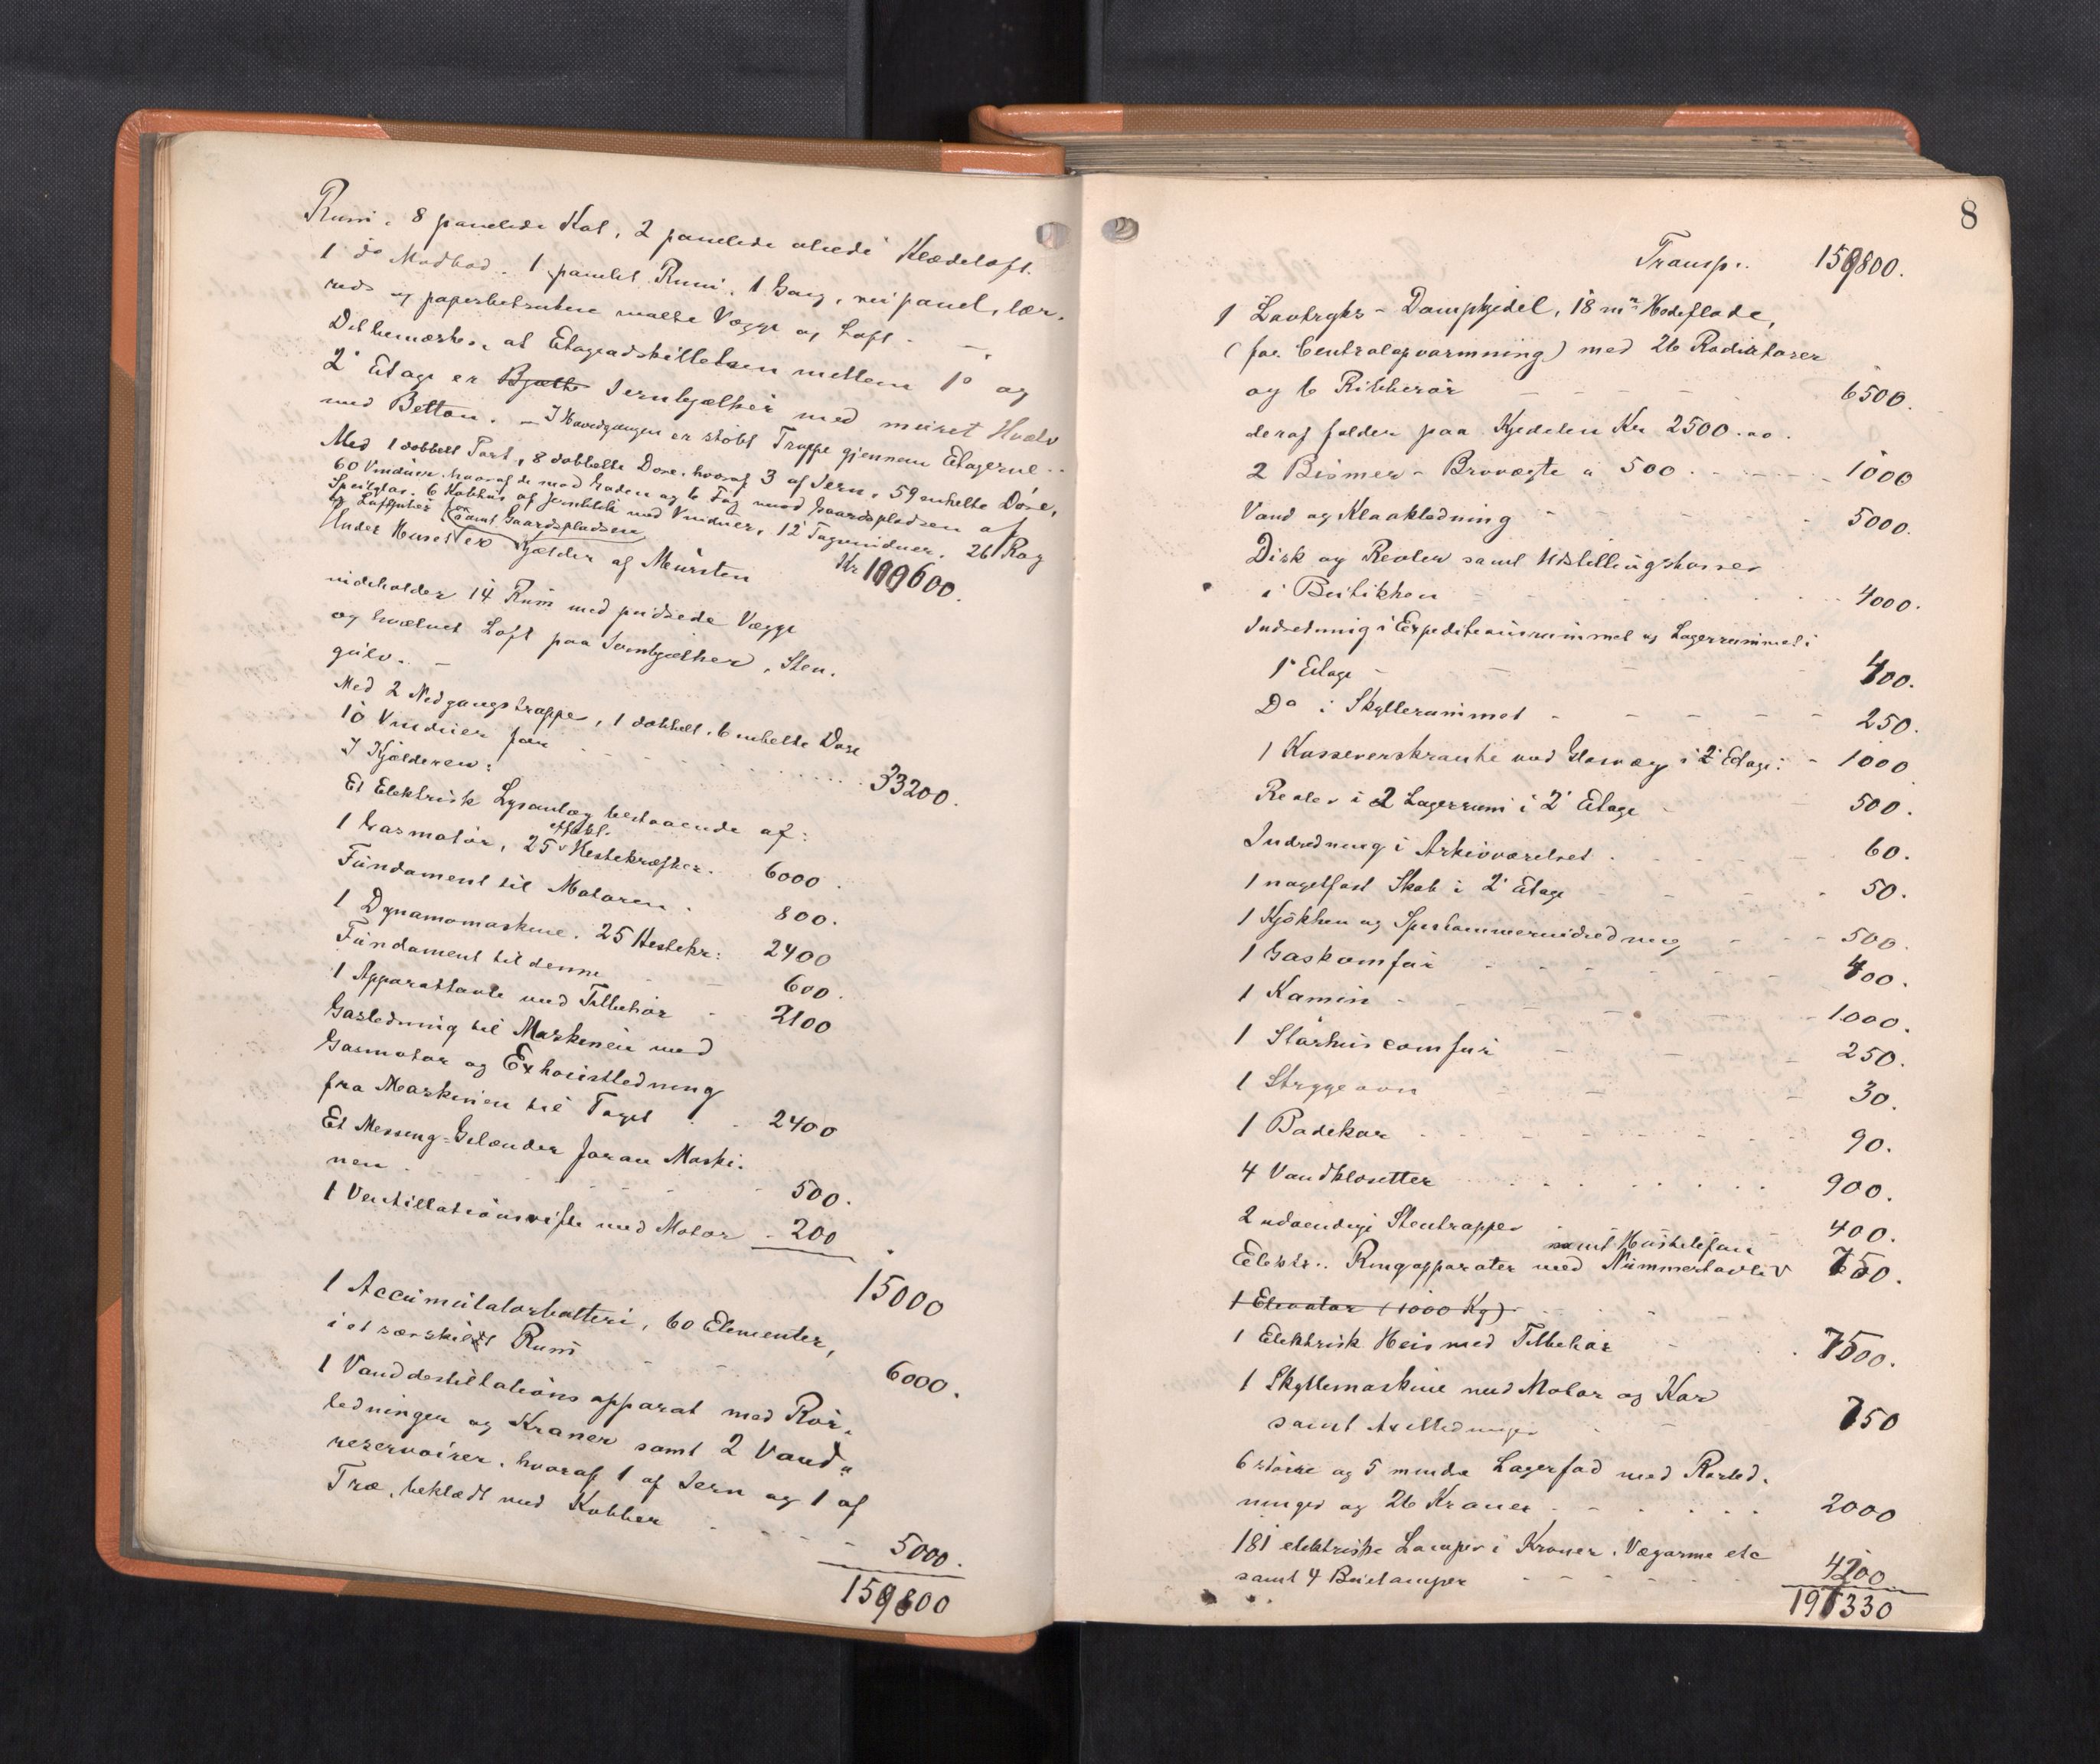 Rum, 8 panelede Kot, 2 panelede aluedi Klædeloft.
1 do Madbod. 1 panelt Rum. 1 Gang, nei panel, lær-
reds og papirbetrukne malte Vægge og Loft. —
Det bemærkes at Etageadskillelsen mellem 1o og
2' Etage er Bjælke Jernbjælker med muret Hvælv
med Betton. — I Hovedgangen er stöbt Trappe gjennem Etagerne..
Med 1 dobbelt Port, 8 dobbelte Döre, hvoraf 3 af Jern, 59 enkelte Döre,
60 Vinduer, hvoraf de mod Gaden og 6 Fag mod Gaardspladsen af
Speilglas. 6 Kobhus af Jernblik med Vinduer, 12 Tagvinduer. 26 Rög
og Luftpiber samt Gaardspladsen Kr 109600.
Under Huset er Kjælder af Mursten
indeholder 14 Rum med pudsede Vægge
og hvælvet Loft paa Jernbjælker, Sten-
gulv. —
Med 2 Nedgangstrappe, 1 dobbelt, 6 enkelte Döre
10 Vinduer for 33200.
I Kjælderen:
Et Elektrisk Lysanlæg bestaaende af:
1 Gasmotor, 25 effekt. Hestekræfter. 6000.
Fundament til Motoren. 800.
1 Dynamomaskine. 25 Hestekr: 2400
Fundament til denne 600.
1 Apparattavle med Tilbehör 2100
Gasledning til Maskinen med
Gasmotor og Exhaustledning
fra Maskinen til Taget 2400
Et Messing-Gelænder foran Maski-
nen 500.
1 Ventillationsvifte med Motor - 200
15000
1 Accumulatorbatteri, 60 Elementer,
i et særskildt Rum 6000.
1 Vanddestillationsapparat med Rör-
ledninger og Kraner samt 2 Vand-
reservoirer, hvoraf 1 af Jern og 1 af
Træ, beklædt med Kobber 5000.
159800
8
Transp.. 159800.
1 Lavtryks-Dampkjedel, 18 m² Hedeflade,
(for Centralopvarmning) med 26 Radiatorer
og 6 Ribberör 6500.
deraf falder paa Kjedelen Kr 2500.00.
2 Bismer-Brovægte a 500. 1000
Vand og Kloakledning 5000.
Disk og Reoler samt Udstillingskasser
i Butikken 4000.
Indredning i Expeditionsrummet og Lagerrummet i
1' Etage 400.
Do i Skyllerummet 250.
1 Kasseverskranke med Glasvæg i 2' Etage: 1000
Reoler i 2 Lagerrum i 2' Etage 500.
Indredning i Arkivværelset. 60.
1 nagelfast Skab i 2' Etage 50.
1 Kjökken og Spiskammerindredning 500.
1 Gaskomfur 400.
1 Kamin 1000.
1 Storhuscomfur 250.
1 Strygeovn 30.
1 Badekar 90.
4 Vandklosetter 900.
2 udvendige Stentrapper 400.
samt Hustelefon
Elektr.. Ringapparater med Nummertavle 750.
1 Elevator (1000 Kg)
1 Elektrisk Heis med Tilbehör 7500.
1 Skyllemaskine med Motor og Kar
samt Axelledninger 750
6 större og 5 mindre Lagerfad med Rörled-
ninger og 26 Kraner 2000
181 elektriske Lamper i Kroner, Vægarme etc
samt 4 Buelamper 4200
197330